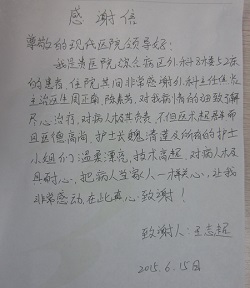 感谢信
尊敬的现代医院领导好:
我是贵医院 病区外科3楼52床
的患者,住院其间非常感谢外科主任
主治医生周正前 陈 ,对我病情的细致了解
尽心治疗,对病人极其负责,不但医术超群而
且医德高尚,护士长魏清莲及所有的护士
小姐们温柔漂亮,技术高超,对病人极
具耐心,把病人当家人一样关心,让我
非常感动在此真心致谢!
致谢人:王志超
2015.6.15日